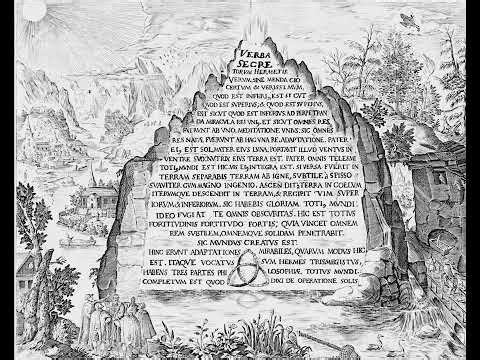 VERBA
SECRE
TORUM HERMETIS
VERUM, SINE MENDACIO
CERTUM, & VERISSIMUM,
QUOD EST INFERI, EST SICUT
QUOD EST SUPERIUS, & QUOD EST SUPERIUS,
EST SICUT QUOD EST INFERIUS AD PERPETRAN
DA MIRACULA REI UNI, ET SICUT OMNES RES
FUERUNT AB UNO, MEDITATIONE UNIUS. SIC OMNES
RES NATÆ FUERUNT AB HAC UNA RE, ADAPTATIONE. PATER
EI, EST SOL, MATER EIUS LUNA, PORTAVIT ILLUD VENTUS IN
VENTRE SUO, NUTRIX EIUS TERRA EST. PATER OMNIS TELESMI
TOTI, MUNDI EST HIC. VIS EI, INTEGRA EST. SI VERSA FUERIT IN
TERRAM SEPARABIS TERRAM AB IGNE, SUBTILE A SPISSO
SUAVITER CUM MAGNO INGENIO. ASCENDIT A TERRA IN COELUM
ITERUMQUE DESCENDIT IN TERRAM, & RECIPIT VIM SUPER
IORUM & INFERIORUM. SIC HABEBIS GLORIAM TOTI, MUNDI.
IDEO FUGIAT A TE OMNIS OBSCURITAS. HIC EST TOTIUS
FORTITUDINIS FORTITUDO FORTIS, QUIA VINCET OMNEM
REM SUBTILEM, OMNEMQUE SOLIDAM PENETRABIT.
SIC MUNDUS CREATUS EST.
HINC ERUNT ADAPTATIONES MIRABILES, QUARUM MODUS HIC
EST. ITAQUE VOCATUS SUM HERMES TRISMEGISTUS,
HABENS TRES PARTES PHILOSOPHIÆ TOTIUS MUNDI.
COMPLETUM EST QUOD DIXI DE OPERATIONE SOLIS